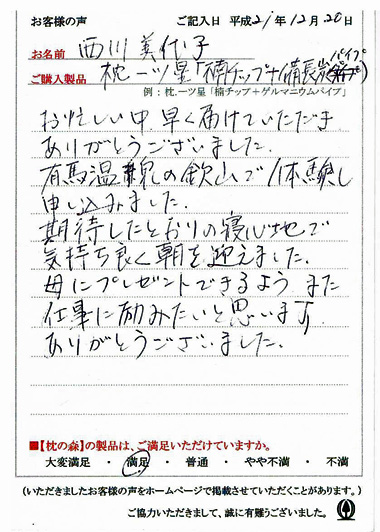 お客様の声 ご記入日 平成21年12月20日
お名前 西川美代子
ご購入製品 枕一ツ星「楠チップ+備長炭パイプ」
例:枕.一ツ星「楠チップ+ゲルマニウムパイプ」
お忙しい中、早く届けていただき
ありがとうございました。
有馬温泉の欽山で体験し
申し込みました。
期待したとおりの寝心地で
気持ち良く朝を迎えました。
母にプレゼントできるよう、また
仕事に励みたいと思います。
ありがとうございました。
■【枕の森】の製品は、ご満足いただけていますか。
大変満足 ・ 満足 ・ 普通 ・ やや不満 ・ 不満
(いただきましたお客様の声をホームページで掲載させていただくことがあります。)
ご協力いただきまして、誠に有難うございました。